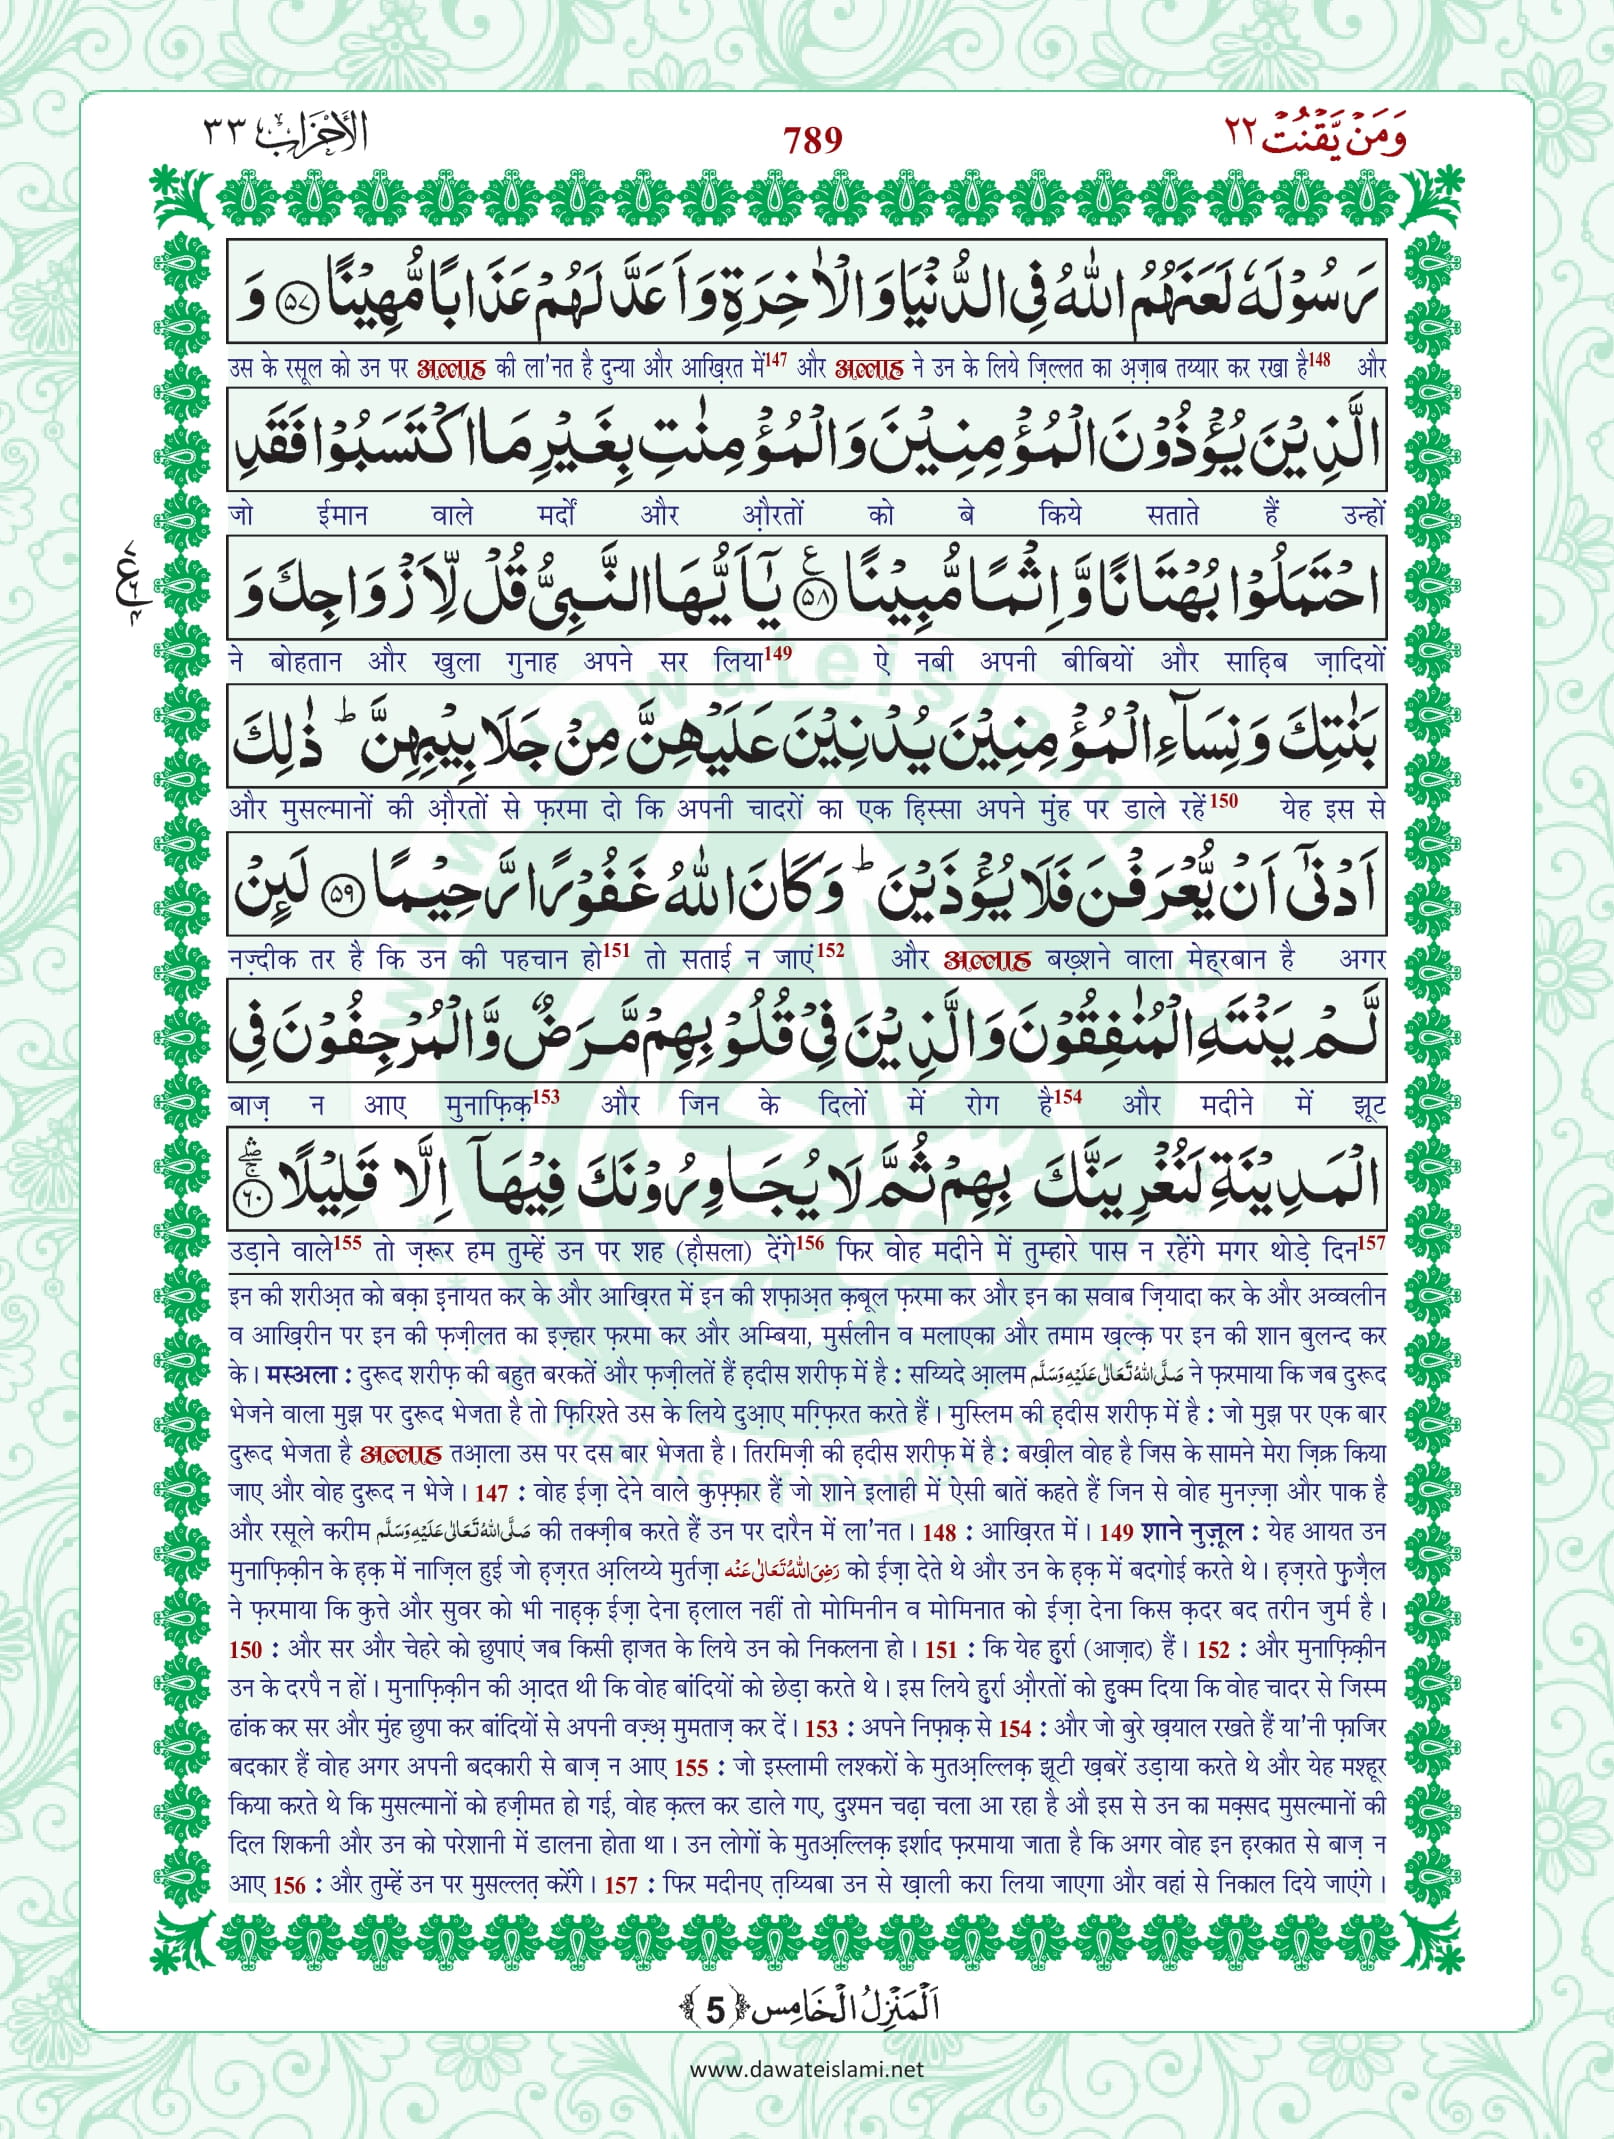 وَمَنۡ يَّقۡنُتۡ ٢٢
789
الۡاَحۡزَاب ٣٣
رَسُوۡلَهٗ لَعَنَهُمُ اللّٰهُ فِى الدُّنۡيَا وَ الۡاٰخِرَةِ وَ اَعَدَّ لَهُمۡ عَذَابًا مُّهِيۡنًا ﴿۵۷﴾ وَ
उस के रसूल को उन पर अल्लाह की ला'नत है दुन्या और आख़िरत में147 और अल्लाह ने उन के लिये ज़िल्लत का अ़ज़ाब तय्यार कर रखा है148 और
الَّذِيۡنَ يُؤۡذُوۡنَ الۡمُؤۡمِنِيۡنَ وَ الۡمُؤۡمِنٰتِ بِغَيۡرِ مَا اكۡتَسَبُوۡا فَقَدِ
जो ईमान वाले मर्दों और औ़रतों को बे किये सताते हैं उन्हों
احۡتَمَلُوۡا بُهۡتَانًا وَّ اِثۡمًا مُّبِيۡنًا ﴿۵۸﴾ ع يٰۤاَيُّهَا النَّبِىُّ قُلۡ لِّاَزۡوَاجِكَ وَ
ने बोहतान और खुला गुनाह अपने सर लिया149 ऐ नबी अपनी बीबियों और साह़िब ज़ादियों
بَنٰتِكَ وَ نِسَآءِ الۡمُؤۡمِنِيۡنَ يُدۡنِيۡنَ عَلَيۡهِنَّ مِنۡ جَلَابِيۡبِهِنَّ ؕ ذٰلِكَ
और मुसल्मानों की औ़रतों से फ़रमा दो कि अपनी चादरों का एक ह़िस्सा अपने मुंह पर डाले रहें150 येह इस से
اَدۡنٰۤى اَنۡ يُّعۡرَفۡنَ فَلَا يُؤۡذَيۡنَ ؕ وَ كَانَ اللّٰهُ غَفُوۡرًا رَّحِيۡمًا ﴿۵۹﴾ لَئِنۡ
नज़्दीक तर है कि उन की पहचान हो151 तो सताई न जाएं152 और अल्लाह बख़्शने वाला मेह्रबान है अगर
لَّمۡ يَنۡتَهِ الۡمُنٰفِقُوۡنَ وَ الَّذِيۡنَ فِىۡ قُلُوۡبِهِمۡ مَّرَضٌ وَّ الۡمُرۡجِفُوۡنَ فِى
बाज़ न आए मुनाफ़िक़153 और जिन के दिलों में रोग है154 और मदीने में झूट
الۡمَدِيۡنَةِ لَنُغۡرِيَنَّكَ بِهِمۡ ثُمَّ لَا يُجَاوِرُوۡنَكَ فِيۡهَاۤ اِلَّا قَلِيۡلًا ﴿۶۰﴾
उड़ाने वाले155 तो ज़रूर हम तुम्हें उन पर शह (ह़ौसला) देंगे156 फिर वोह मदीने में तुम्हारे पास न रहेंगे मगर थोड़े दिन157
इन की शरीअ़त को बक़ा इनायत कर के और आख़िरत में इन की शफ़ाअ़त क़बूल फ़रमा कर और इन का सवाब ज़ियादा कर के और अव्वलीन
व आख़िरीन पर इन की फ़ज़ीलत का इज़्हार फ़रमा कर और अम्बिया, मुर्सलीन व मलाएका और तमाम ख़ल्क़ पर इन की शान बुलन्द कर
के। मस्अला : दुरूद शरीफ़ की बहुत बरकतें और फ़ज़ीलतें हैं ह़दीस शरीफ़ में है : सय्यिदे आ़लम صَلَّى اللّٰهُ تَعَالٰى عَلَيْهِ وَسَلَّم ने फ़रमाया कि जब दुरूद
भेजने वाला मुझ पर दुरूद भेजता है तो फ़िरिश्ते उस के लिये दुआ़ए मग़्फ़िरत करते हैं। मुस्लिम की ह़दीस शरीफ़ में है : जो मुझ पर एक बार
दुरूद भेजता है अल्लाह तआ़ला उस पर दस बार भेजता है। तिरमिज़ी की ह़दीस शरीफ़ में है : बख़ील वोह है जिस के सामने मेरा ज़िक्र किया
जाए और वोह दुरूद न भेजे। 147 : वोह ईज़ा देने वाले कुफ़्फ़ार हैं जो शाने इलाही में ऐसी बातें कहते हैं जिन से वोह मुनज़्ज़ा और पाक है
और रसूले करीम صَلَّى اللّٰهُ تَعَالٰى عَلَيْهِ وَسَلَّم की तक्ज़ीब करते हैं उन पर दारैन में ला'नत। 148 : आख़िरत में। 149 शाने नुज़ूल : येह आयत उन
मुनाफ़िक़ीन के ह़क़ में नाज़िल हुई जो ह़ज़रत अ़लिय्ये मुर्तज़ा رَضِىَ اللّٰهُ تَعَالٰى عَنْه को ईज़ा देते थे और उन के ह़क़ में बदगोई करते थे। ह़ज़रते फ़ुज़ैल
ने फ़रमाया कि कुत्ते और सुवर को भी नाह़क़ ईज़ा देना ह़लाल नहीं तो मोमिनीन व मोमिनात को ईज़ा देना किस क़दर बद तरीन जुर्म है।
150 : और सर और चेहरे को छुपाएं जब किसी ह़ाजत के लिये उन को निकलना हो। 151 : कि येह हु़र्रा (आज़ाद) हैं। 152 : और मुनाफ़िक़ीन
उन के दरपै न हों। मुनाफ़िक़ीन की आ़दत थी कि वोह बांदियों को छेड़ा करते थे। इस लिये हु़र्रा औ़रतों को हु़क्म दिया कि वोह चादर से जिस्म
ढांक कर सर और मुंह छुपा कर बांदियों से अपनी वज़्अ़ मुमताज़ कर दें। 153 : अपने निफ़ाक़ से 154 : और जो बुरे ख़याल रखते हैं या'नी फ़ाजिर
बदकार हैं वोह अगर अपनी बदकारी से बाज़ न आए 155 : जो इस्लामी लश्करों के मुतअ़ल्लिक़ झूटी ख़बरें उड़ाया करते थे और येह मश्हूर
किया करते थे कि मुसल्मानों को हज़ीमत हो गई, वोह क़त्ल कर डाले गए, दुश्मन चढ़ा चला आ रहा है औ इस से उन का मक़्सद मुसल्मानों की
दिल शिकनी और उन को परेशानी में डालना होता था। उन लोगों के मुतअ़ल्लिक़ इर्शाद फ़रमाया जाता है कि अगर वोह इन ह़रकात से बाज़ न
आए 156 : और तुम्हें उन पर मुसल्लत़ करेंगे। 157 : फिर मदीनए त़य्यिबा उन से ख़ाली करा लिया जाएगा और वहां से निकाल दिये जाएंगे।
اَلۡمَنۡزِلُ الۡخَامِس ﴿5﴾
www.dawateislami.net